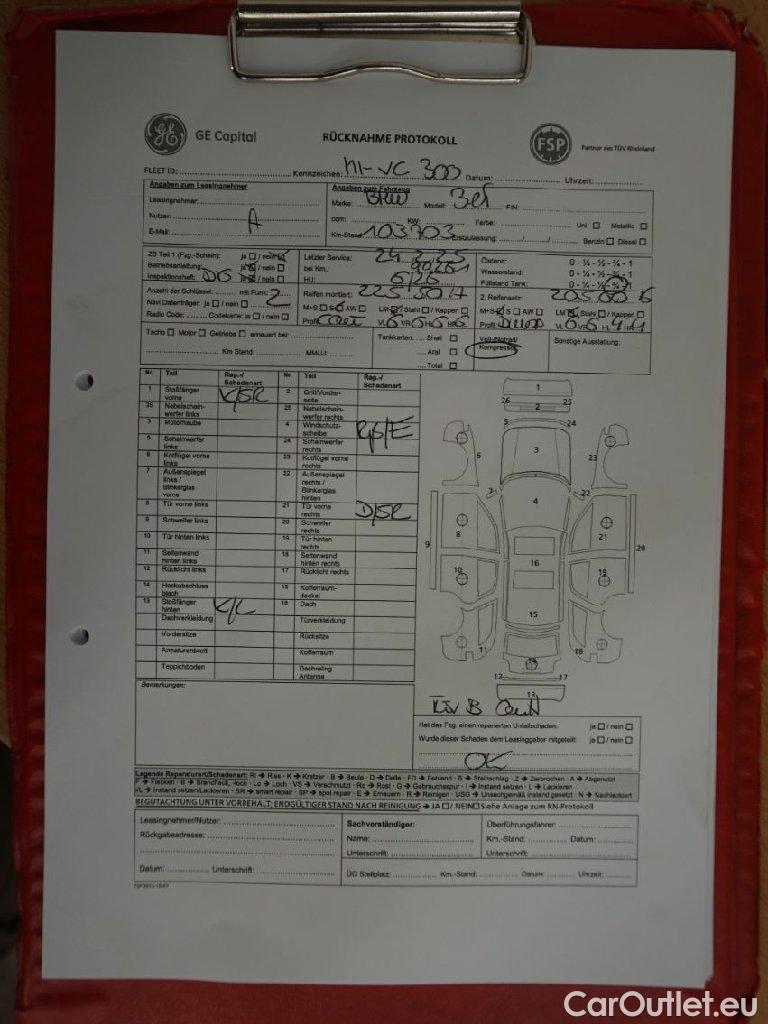 GE Capital
RÜCKNAHME PROTOKOLL
FSP
Partner des TÜV Rheinland
FLEET ID: Kennzeichen: HI-VC 300 Datum: Uhrzeit:
Angaben zum Leasingnehmer
Leasingnehmer:
Nutzer: A
E-Mail:
Angaben zum Fahrzeug
Marke: BMW Modell: 3er FIN:
ccm: KW: Farbe: Uni Metallic
Km-Stand: 103703 Erstzulassung: Benzin Diesel
ZB Teil 1 (Fzg.-Schein): ja / nein
Betriebsanleitung: ja / nein
Inspektionsheft: ja / nein
Letzter Service:
bei Km.:
HU: 6/26
Ölstand: 0 - ¼ - ½ - ¾ - 1
Wasserstand: 0 - ¼ - ½ - ¾ - 1
Füllstand Tank: 0 - ¼ - ½ - ¾ - 1
Anzahl der Schlüssel: mit Funk: 2
Navi Datenträger: ja / nein
Radio Code: Codekarte: ja / nein
Reifen montiert: 225 50 17
M+S S AW LM Stahl / Kappen
Profil
2. Reifensatz: 205 60 16
M+S S AW LM Stahl / Kappen
Profil
Tacho Motor Getriebe erneuert bei
Km Stand: MM/JJ:
Tankkarten: Shell
Aral
Total
Voll-/Notrad/
Kompressor
Sonstige Ausstattung:
Nr. Teil Rep.-/ Schadenart Nr. Teil Rep.-/ Schadenart
1 Stoßfänger vorne K/SR 2 Grill/Vorderseite
26 Nebelscheinwerfer links 25 Nebelscheinwerfer rechts
3 Motorhaube 4 Windschutzscheibe
5 Scheinwerfer links 24 Scheinwerfer rechts
6 Kotflügel vorne links 23 Kotflügel vorne rechts
7 Außenspiegel links / Blinkerglas vorne 22 Außenspiegel rechts / Blinkerglas hinten
8 Tür vorne links 21 Tür vorne rechts D/SR
9 Schweller links 20 Schweller rechts
10 Tür hinten links 19 Tür hinten rechts
11 Seitenwand hinten links 18 Seitenwand hinten rechts
12 Rücklicht links 17 Rücklicht rechts
14 Heckabschlussblech 15 Kofferraumdeckel
13 Stoßfänger hinten K/L 16 Dach
Dachverkleidung Türverkleidung
Vordersitze Rücksitze
Armaturenbrett Kofferraum
Teppichboden Dachreling Antenne
Bemerkungen:
Hat das Fzg. einen reparierten Unfallschaden: ja / nein
Wurde dieser Schaden dem Leasinggeber mitgeteilt: ja / nein
OK
Legende Reparaturart/Schadenart: RI → Riss - K → Kratzer - B → Beule - D → Delle - FD → Fehlend - S → Steinschlag - Z → Zerbrochen - A → Abgenutzt
F → Flecken - B → Brandfleck, -loch - Lo → Loch - VS → Verschmutzt - Ro → Rost - G → Gebrauchsspur - I → Instand setzen - L → Lackieren
I/L → Instand setzen/Lackieren - SR → smart repair - SP → spot repair - E → Erneuern - R → Reinigen - USG → Unsachgemäß instand gesetzt - N → Nachlackiert
BEGUTACHTUNG UNTER VORBEHALT; ENDGÜLTIGER STAND NACH REINIGUNG → JA / NEIN Siehe Anlage zum RN-Protokoll
Leasingnehmer/Nutzer:
Rückgabeadresse:
Datum: Unterschrift:
Sachverständiger:
Name:
Unterschrift:
Überführungsfahrer:
Km.-Stand: Datum:
Unterschrift:
ÜG Stellplatz: Km.-Stand: Datum: Uhrzeit:
CarOutlet.eu